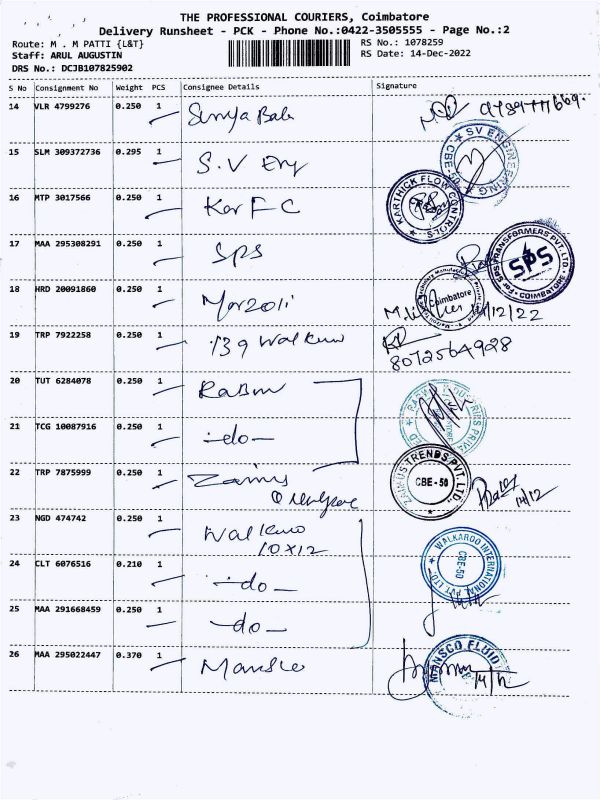 THE PROFESSIONAL COURIERS, Coimbatore
Delivery Runsheet - PCK - Phone No.:0422-3505555 - Page No.:2
Route: M . M PATTI {L&T}
RS No.: 1078259
Staff: ARUL AUGUSTIN
RS Date: 14-Dec-2022
DRS No.: DCJB107825902
S No Consignment No Weight PCS Consignee Details Signature
14 VLR 4799276 0.250 1
15 SLM 309372736 0.295 1 S.V Eng
SV ENGINEERING CBE-50
16 MTP 3017566 0.250 1 Kar F C
KARTHICK FLOW CONTROLS
17 MAA 295308291 0.250 1 SPS
For SPS TRANSFORMERS PVT. LTD. SPS COIMBATORE
18 HRD 20091860 0.250 1 Marzoli
Coimbatore
/12/22
19 TRP 7922258 0.250 1 139 Walkaroo
8072564928
20 TUT 6284078 0.250 1
21 TCG 10087916 0.250 1 -do-
22 TRP 7875999 0.250 1 Zainus
ZAINUS TRENDS PVT. LTD., CBE-50
14/12
23 NGD 474742 0.250 1 Walkaroo
10X12
WALKAROO INTERNATIONAL PVT LTD. CBE-50
24 CLT 6076516 0.210 1 -do-
25 MAA 291668459 0.250 1 -do-
26 MAA 295022447 0.370 1 Mansco
MANSCO FLUID
14/12